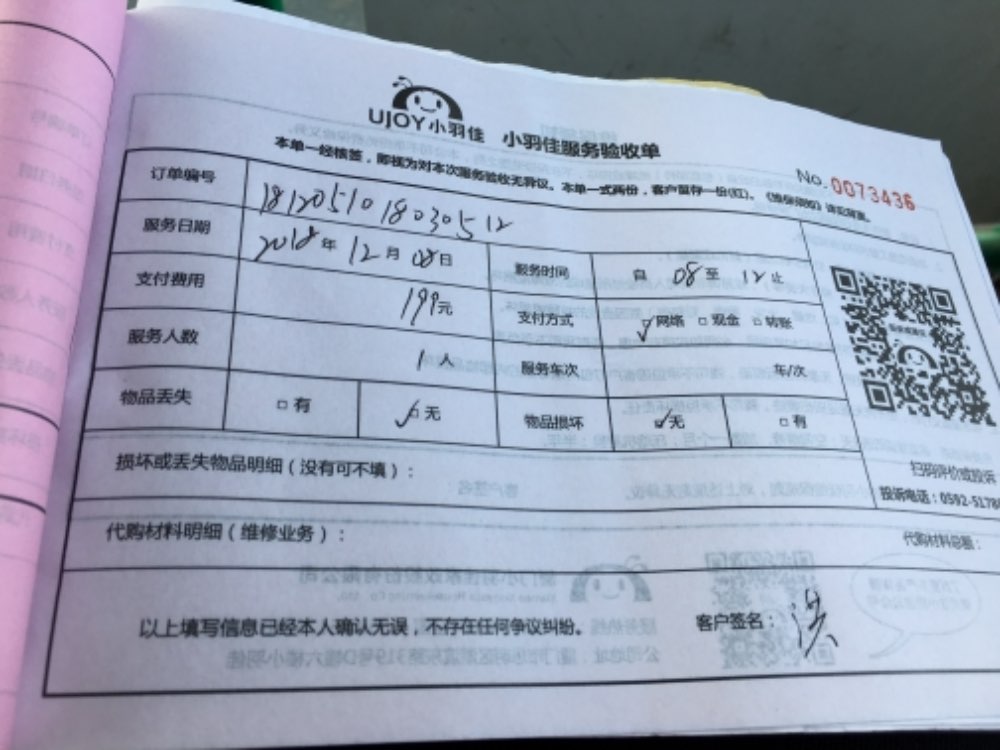 UJOY小羽佳 小羽佳服务验收单
No. 0073436
本单一经核签，即视为对本次服务验收无异议。本单一式两份，客户留存一份(红)。《维保须知》请见背面。
订单编号 18120510180305 12
服务日期 2018年 12月 08日 服务时间 自 08 至 12 止
支付费用 199元 支付方式 ☑网络 □现金 □转账
服务人数 1人 服务车次 车/次
物品丢失 □有 ☑无 物品损坏 ☑无 □有
扫码评价或投诉
投诉电话：0592-5178
损坏或丢失物品明细（没有可不填）：
代购材料明细（维修业务）： 代购材料总额：
以上填写信息已经本人确认无误，不存在任何争议纠纷。 客户签名：洪